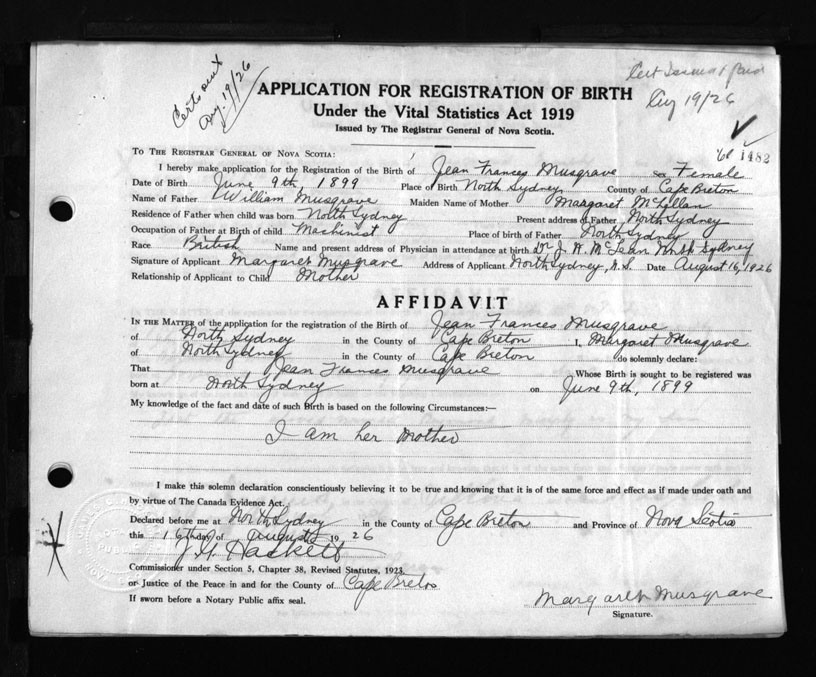 Cert sent
Aug. 19/26
Aug 19/26
APPLICATION FOR REGISTRATION OF BIRTH
Under the Vital Statistics Act 1919
Issued by The Registrar General of Nova Scotia.
1482
TO THE REGISTRAR GENERAL OF NOVA SCOTIA:
I hereby make application for the Registration of the Birth of Jean Frances Musgrave sex Female
Date of Birth June 9th, 1899 Place of Birth North Sydney County of Cape Breton
Name of Father William Musgrave Maiden Name of Mother Margaret McLellan
Residence of Father when child was born North Sydney Present address of Father North Sydney
Occupation of Father at Birth of child Machinist Place of birth of Father North Sydney
Race British Name and present address of Physician in attendance at birth Dr J. W. McLean North Sydney
Signature of Applicant Margaret Musgrave Address of Applicant North Sydney, N.S. Date August 16, 1926
Relationship of Applicant to Child Mother
AFFIDAVIT
IN THE MATTER of the application for the registration of the Birth of Jean Frances Musgrave
of North Sydney in the County of Cape Breton I, Margaret Musgrave
of North Sydney in the County of Cape Breton do solemnly declare:
That Jean Frances Musgrave Whose Birth is sought to be registered was
born at North Sydney on June 9th, 1899
My knowledge of the fact and date of such Birth is based on the following Circumstances:—
I am her Mother
I make this solemn declaration conscientiously believing it to be true and knowing that it is of the same force and effect as if made under oath and
by virtue of The Canada Evidence Act.
Declared before me at North Sydney in the County of Cape Breton and Province of Nova Scotia
this 16th day of August 1926
Hackett
Commissioner under Section 5, Chapter 38, Revised Statutes, 1923.
or Justice of the Peace in and for the County of Cape Breton
If sworn before a Notary Public affix seal.
Margaret Musgrave
Signature.